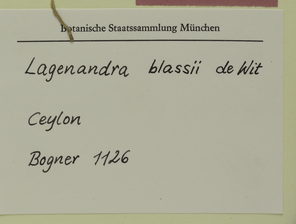 Botanische Staatssammlung München
Lagenandra blassii de Wit
Ceylon
Bogner 1126